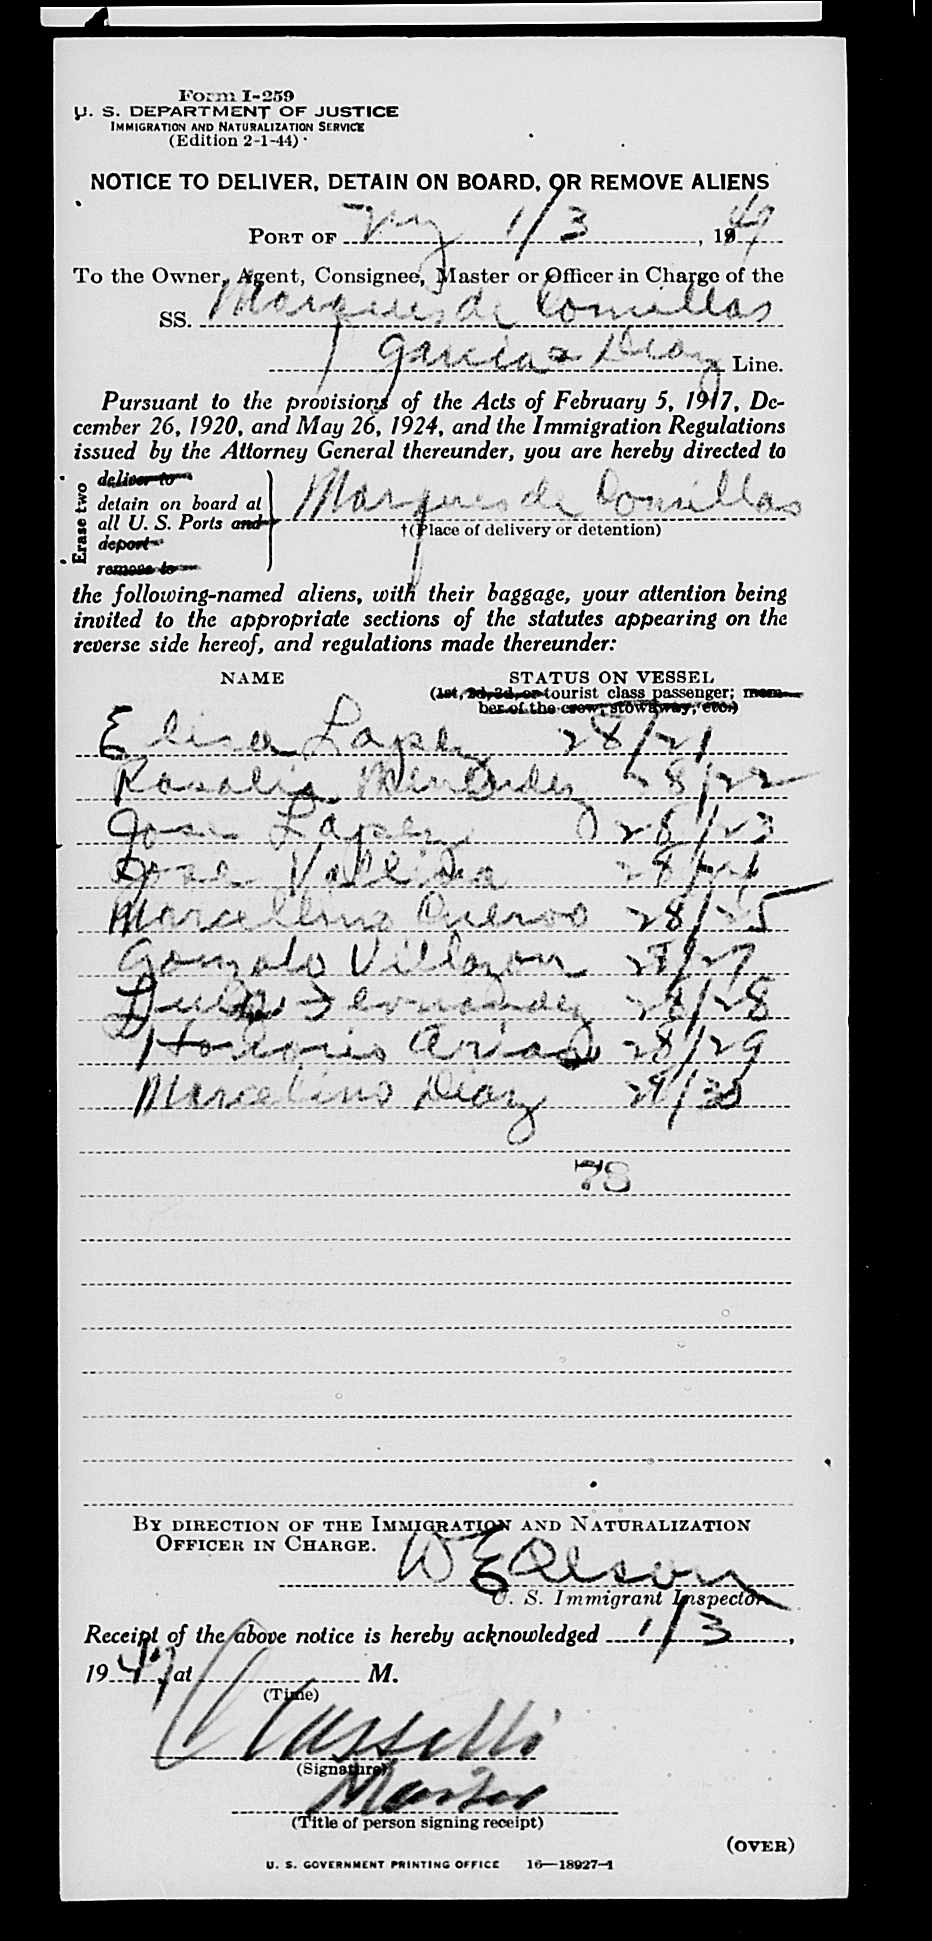 Form I-259
U. S. DEPARTMENT OF JUSTICE
IMMIGRATION AND NATURALIZATION SERVICE
(Edition 2-1-44)
NOTICE TO DELIVER, DETAIN ON BOARD, OR REMOVE ALIENS
PORT OF NY 1/3, 1947
To the Owner, Agent, Consignee, Master or Officer in Charge of the
SS. Marques de Comillas
Garcia & Diaz Line.
Pursuant to the provisions of the Acts of February 5, 1917, De-
cember 26, 1920, and May 26, 1924, and the Immigration Regulations
issued by the Attorney General thereunder, you are hereby directed to
Erase two
deliver to
detain on board at
all U. S. Ports and
deport
remove to
Marques de Comillas
†(Place of delivery or detention)
the following-named aliens, with their baggage, your attention being
invited to the appropriate sections of the statutes appearing on the
reverse side hereof, and regulations made thereunder:
NAME STATUS ON VESSEL
(1st, 2d, 3d, or tourist class passenger; mem-
ber of the crew, stowaway, etc.)
Elisa Lopez 28/21
Rosalia Menendez 28/22
Jose Lopez 28/23
Jose 28/24
Marcelino Cuervo 28/25
Gonzalo Villazon 28/27
Fernandez 28/28
Arias 28/29
Marcelino Diaz 29/30
78
BY DIRECTION OF THE IMMIGRATION AND NATURALIZATION
OFFICER IN CHARGE.
W E Olson
U. S. Immigrant Inspector
Receipt of the above notice is hereby acknowledged 1/3,
1947, at M.
(Time)
(Signature)
Master
(Title of person signing receipt)
(OVER)
U. S. GOVERNMENT PRINTING OFFICE 16—18927-1